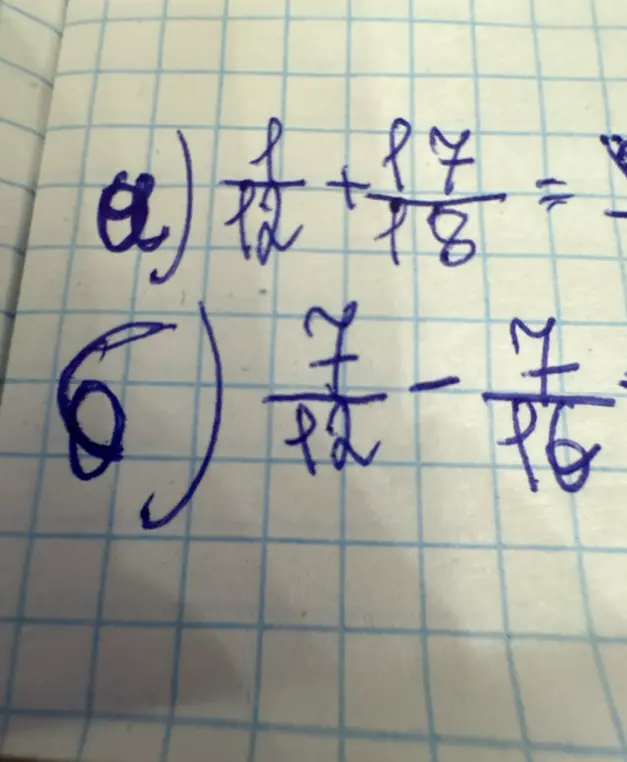 а) 1/12 + 17/18 =
б) 7/12 - 7/16